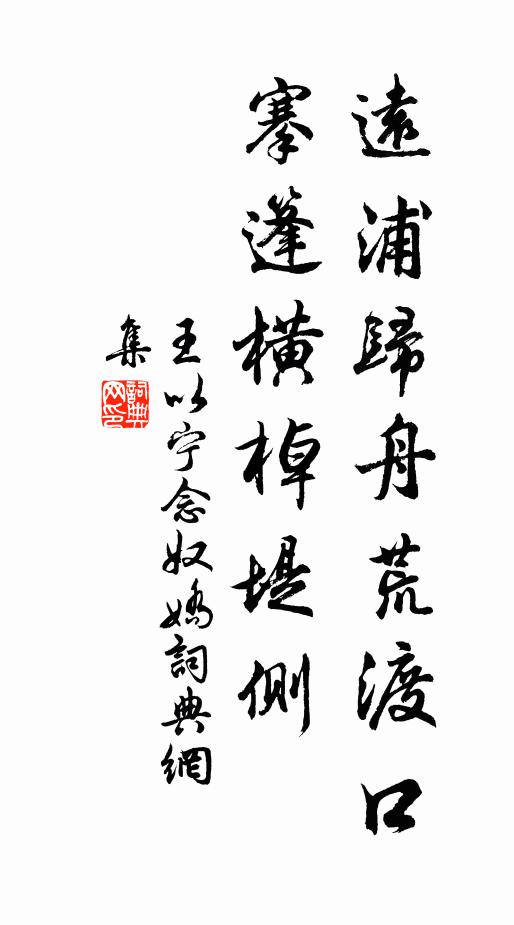 遠浦歸舟荒渡口
搴蓬横棹堤側
王以宁念奴嬌詞典網
集
詞典网印